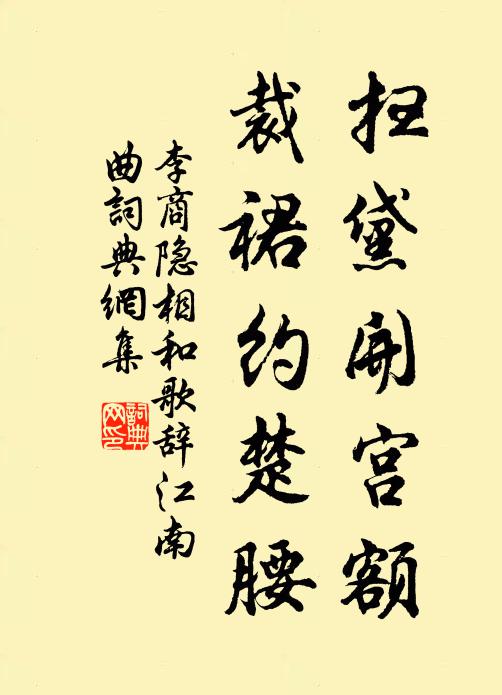 扫黛开宫额
裁裙约楚腰
李商隐相和歌辞江南
曲詞典網集
詞典网印